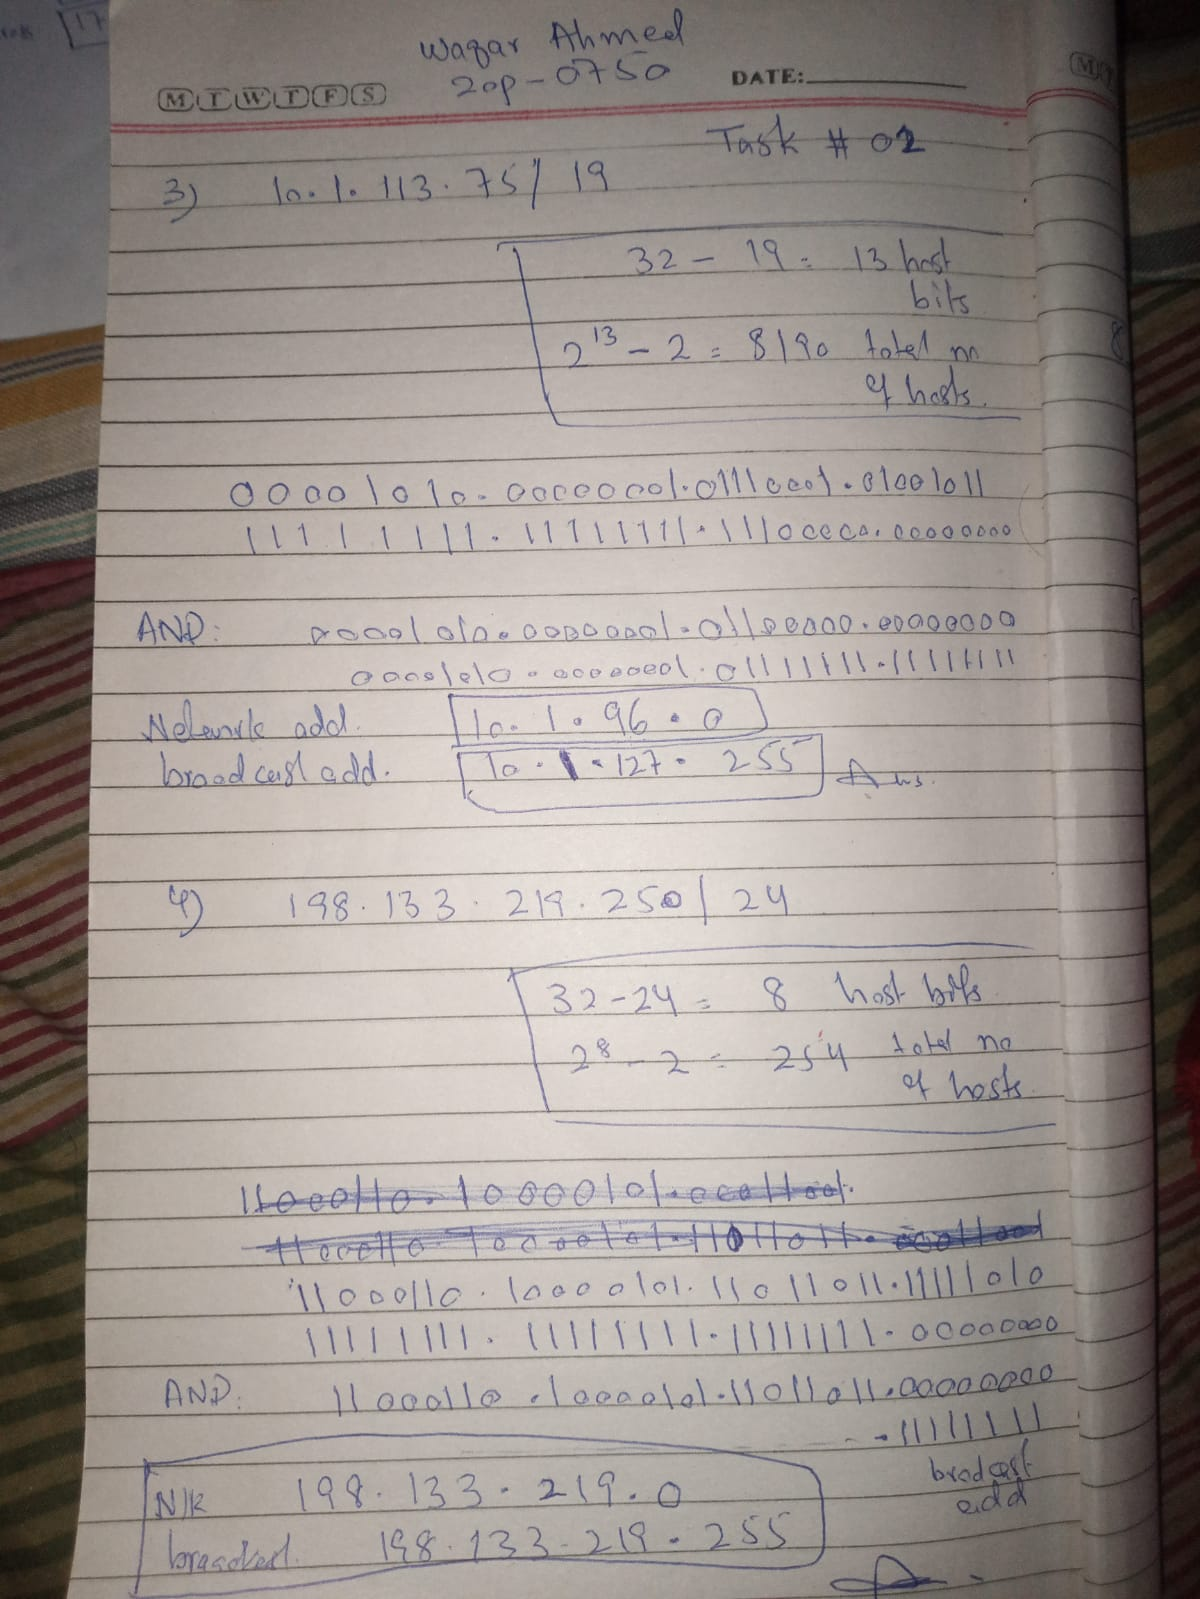 Waqar Ahmed
20p-0750
M T W T F S
DATE:
Task # 02
3) 10.1.113.75/19
32 - 19 = 13 host
bits
2^13 - 2 = 8190 total no
of hosts.
00001010.00000001.01110001.01001011
11111111.11111111.11100000.00000000
AND: 00001010.00000001.01100000.00000000
00001010.00000001.01111111.11111111
Network add. 10.1.96.0
broadcast add. 10.1.127.255 Ans.
4) 198.133.219.250/24
32-24 = 8 host bits
2^8 - 2 = 254 total no
of hosts.
11000110.10000101.00011001.
11000110.10000101.11011011.
11000110.10000101.11011011.11111010
11111111.11111111.11111111.00000000
AND: 11000110.10000101.11011011.00000000
.11111111
brodcast
add
N/k 198.133.219.0
198.133.219.255